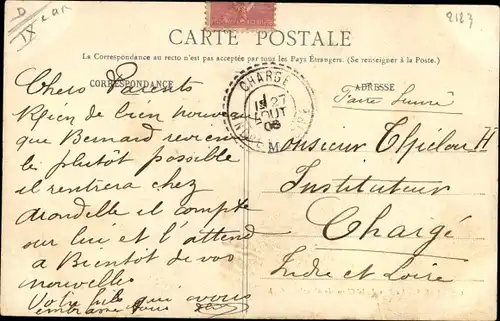 D
IX
2123
CARTE POSTALE
La Correspondance au recto n'est pas acceptée par tous les Pays Étrangers. (Se renseigner à la Poste.)
CORRESPONDANCE
ADRESSE
CHARGÉ
27
AOUT
06
INDRE ET LOIRE
Chers Parents
Rien de bien nouveau
que Bernard revienne
le plutôt possible
il rentrera chez
il compte
sur lui et l'attend
a Bientôt de vos
nouvelles
Votre fils que vous
embrasse tous
Faire Suivre
M
Monsieur
Instituteur
Chargé
Indre et Loire